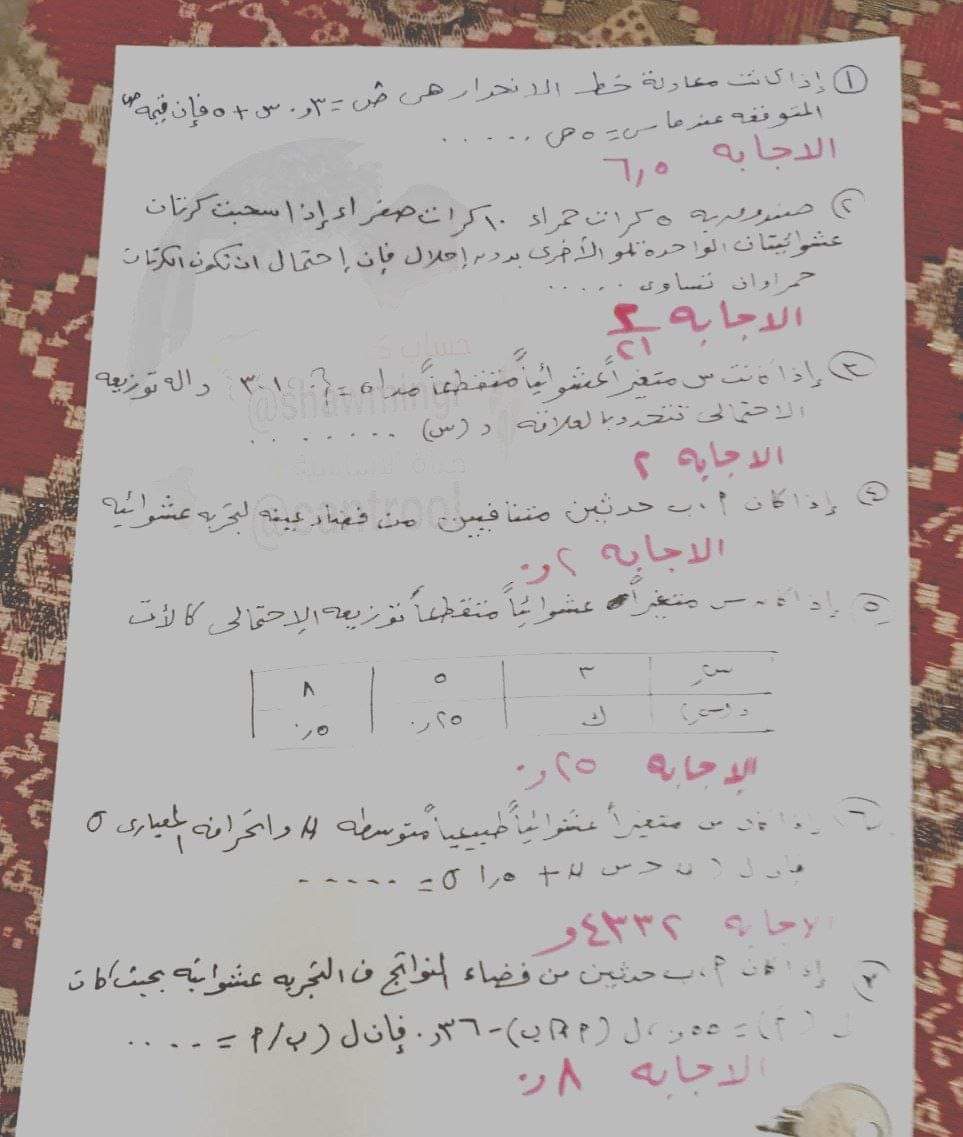 ① إذا كانت معادلة خط الانحدار هي ص = ٣و. س + ٥ فإن قيمة ص
المتوقعه عندما س = ٥ ص .....
الاجابه ٦٫٥
② صندوق به ٥ كرات حمراء ١٠ كرات صفراء إذا سحبت كرتان
عشوائيتان الواحدة تلو الأخرى بدون إحلال فإن إحتمال ان تكون الكرتان
حمراوان تساوى .....
الاجابه ٢/٢١
③ إذا كانت س متغيراً عشوائياً متقطعاً مداه = ٣،١،٠ داله توزيعه
الاحتمالى تتحدد بالعلاقه د (س) ........
الاجابه ٢
④ إذا كان ٩، ب حدثين متنافيين من فضاء عينه لتجربه عشوائيه
الاجابه ٢و.
⑤ إذا كان س متغيراً عشوائياً متقطعاً توزيعه الإحتمالى كالأت
س ٣ ٥ ٨
د(س) ك ٢٥و. ٥و.
الإجابه ٢٥و.
إذا كان س متغيراً عشوائياً طبيعياً متوسطه μ وانحرافه المعيارى σ
س μ + ١٫٥ σ = .....
الاجابه ٤٣٣٢و
إذا كان ٩، ب حدثين من فضاء النواتج ف التجربه عشوائيه بحيث كات
ل (٩) = ٥٥و، ل (٩∩ب) - ٣٦و. فإن ل (ب/٩ = ....
الاجابه ٨و.